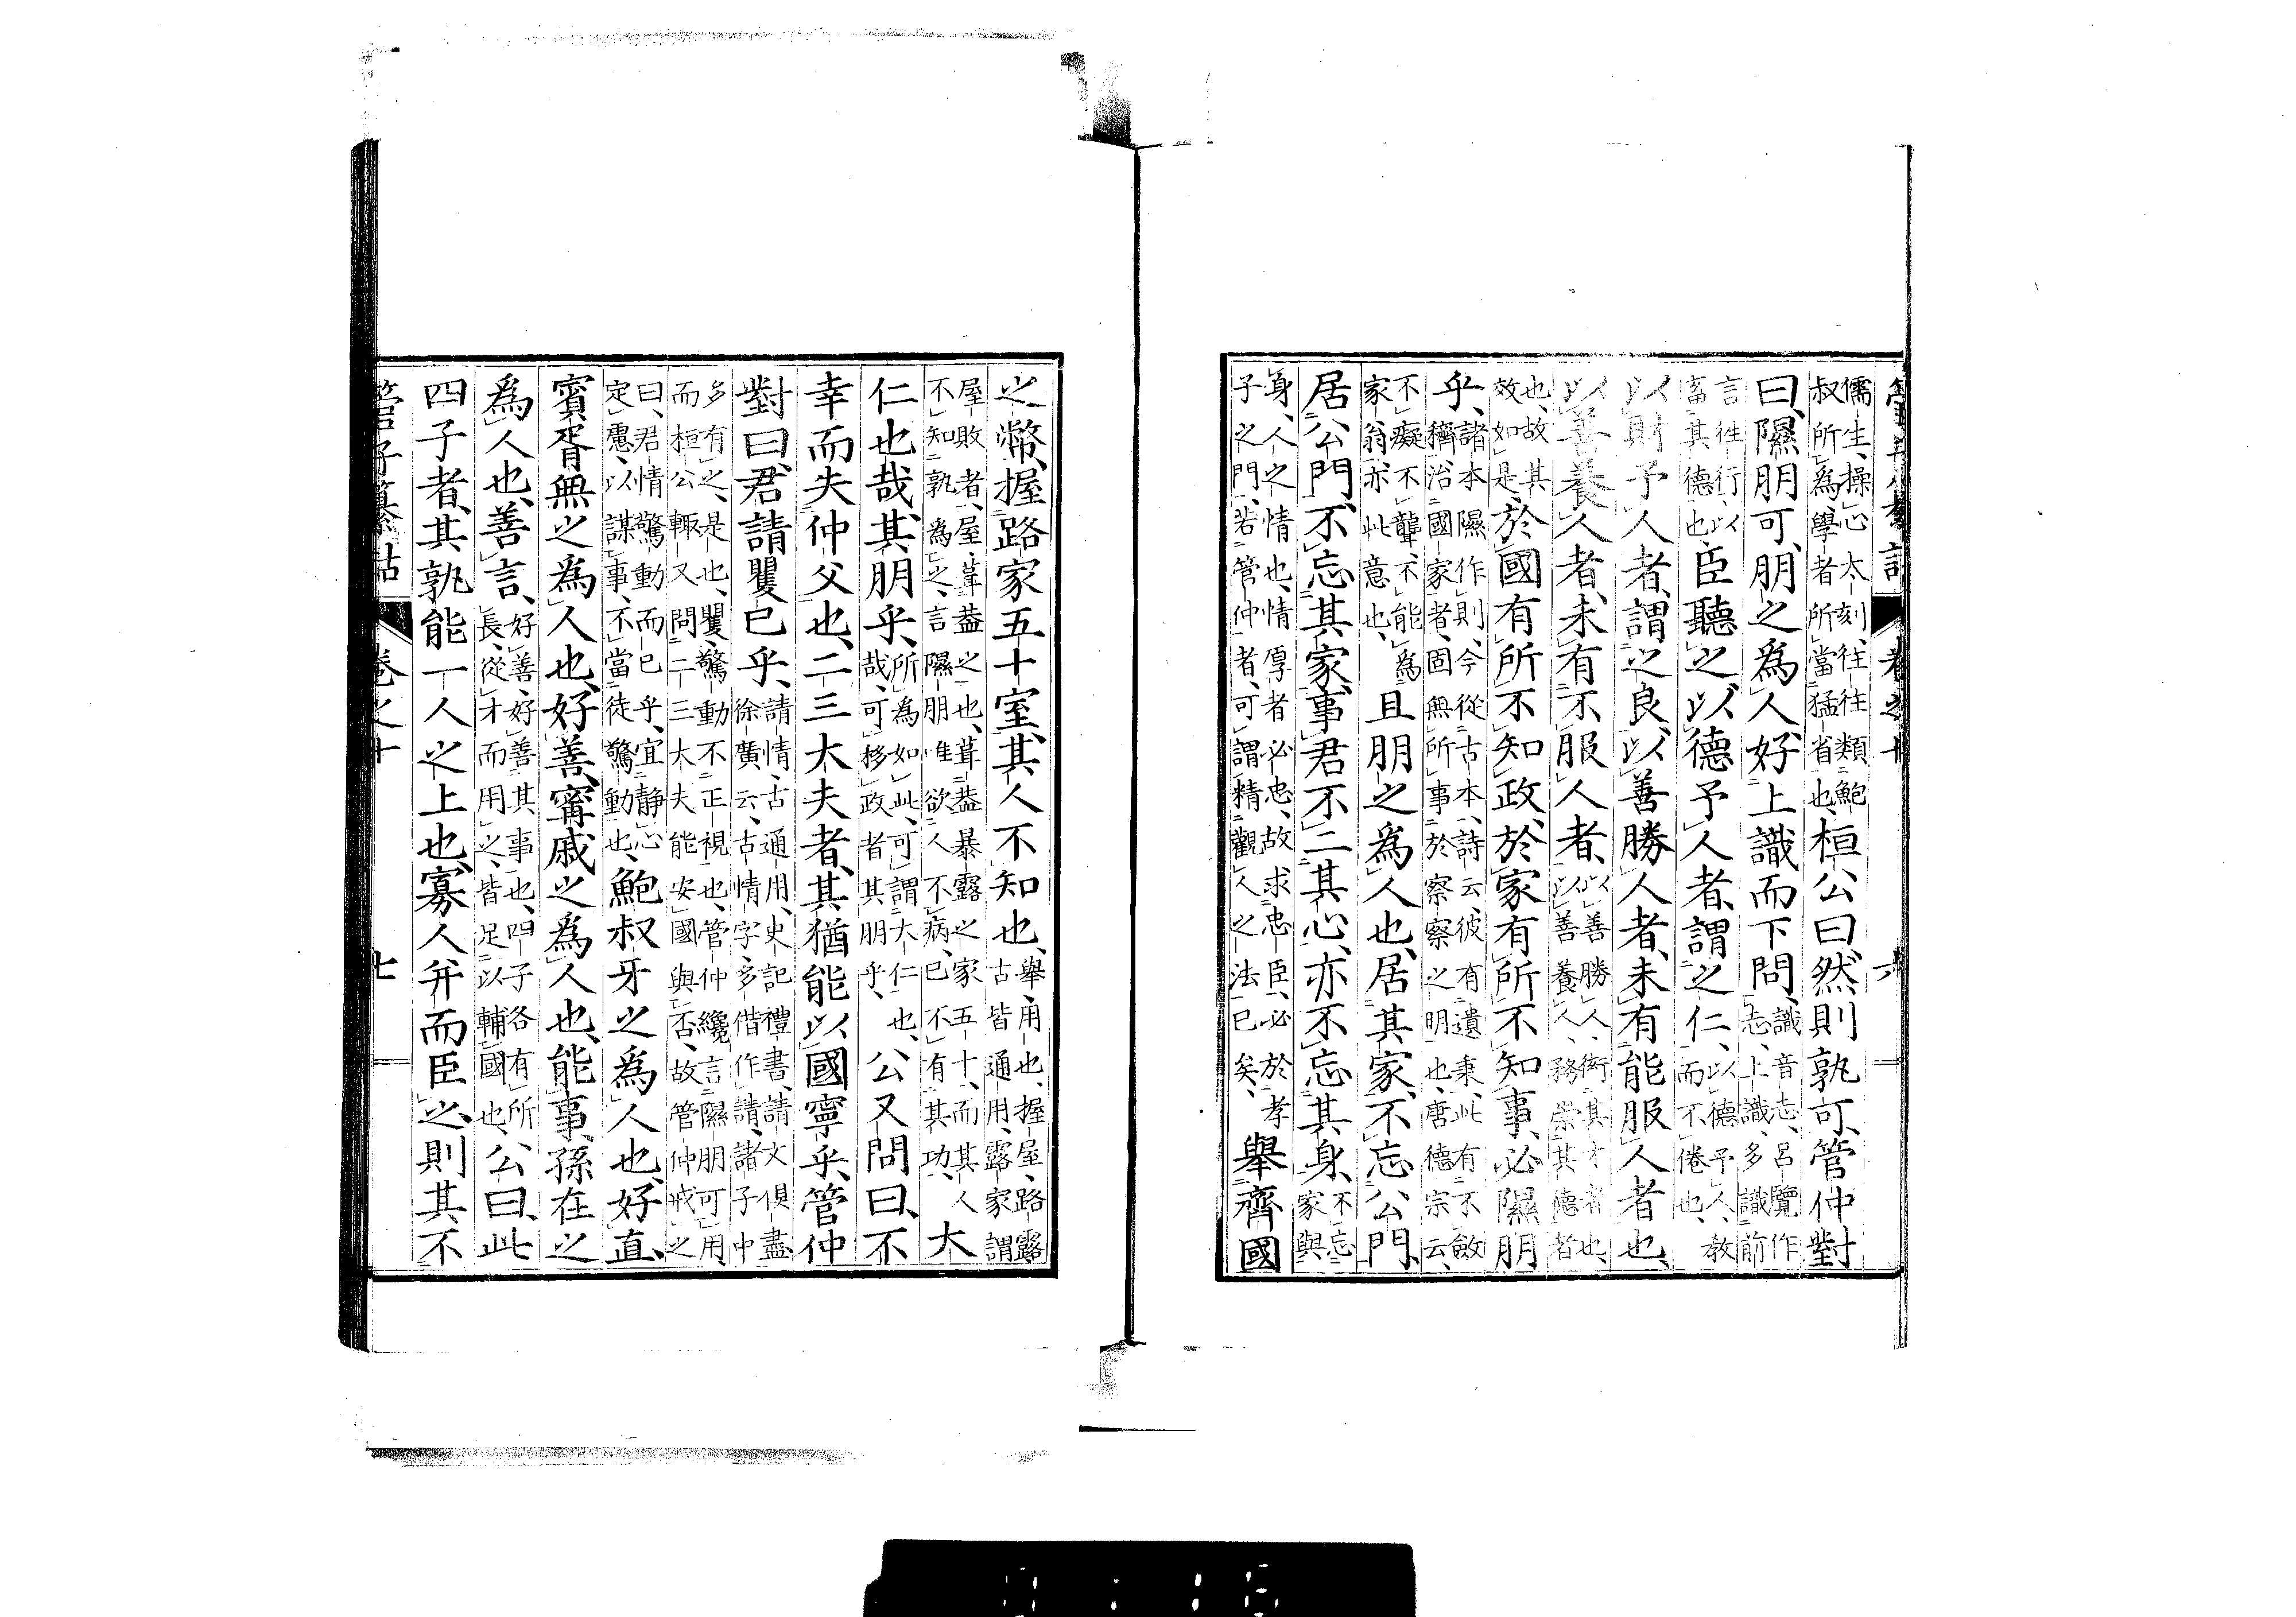 儒生、操心太刻、往往類鮑
叔所為、學者所當猛省也、桓公曰、然則孰可、管仲對
曰、隰朋可、朋之為人、好上識而下問、識音志、呂覽作志、上識、多識前
言徃行、以畜其德也、臣聽之、以德予人者、謂之仁、以德予人、教而不倦也、
以財予人者、謂之良、以善勝人者、未有能服人者也、
以善養人者、未有不服人者、以善勝人、衒其才者也、以善養人、務崇其德者
也、故其效如是、於國有所不知政、於家有所不知事、必隰朋
乎、諸本隰作則、今從古本、詩云、彼有遺秉、此有不斂穧、治國家者、固無所事於察察之明也、唐德宗云、
不癡不聾、不能為家翁、亦此意也、且朋之為人也、居其家、不忘公門、
居公門、不忘其家、事君不二其心、亦不忘其身、不忘家與
身、人之情也、情厚者必忠、故求忠臣、必於孝子之門、若管仲者、可謂精觀人之法已矣、舉齊國
卷之十
六
之幣、握路家五十室、其人不知也、舉、用也、握屋、路露古皆通用、露家謂
屋敗者、屋、葺蓋之也、葺蓋暴露之家五十、而其人不知孰為之、言隰朋唯欲人不病、已不有其功、大
仁也哉、其朋乎、所為如此、可謂大仁也哉、可移政者其朋乎、公又問曰、不
幸而失仲父也、二三大夫者、其猶能以國寧乎、管仲
對曰、君請矍已乎、請情、古通用、史記禮書、請文俱盡、徐廣云、古情字、多借作請、諸子中
多有之、是也、矍、驚動不正視也、管仲纔言隰朋可用、而桓公輙又問二三大夫能安國與否、故管仲戒之
曰、君情驚動而已乎、宜靜心定慮、以謀事、不當徒驚動也、鮑叔牙之為人也、好直、
賓胥無之為人也、好善、甯戚之為人也、能事、孫在之
為人也、善言、好善、好善其事也、四子各有所長、從才而用之、皆足以輔國也、公曰、此
四子者、其孰能一人之上也、寡人并而臣之、則其不
管子纂詁
卷之十
七